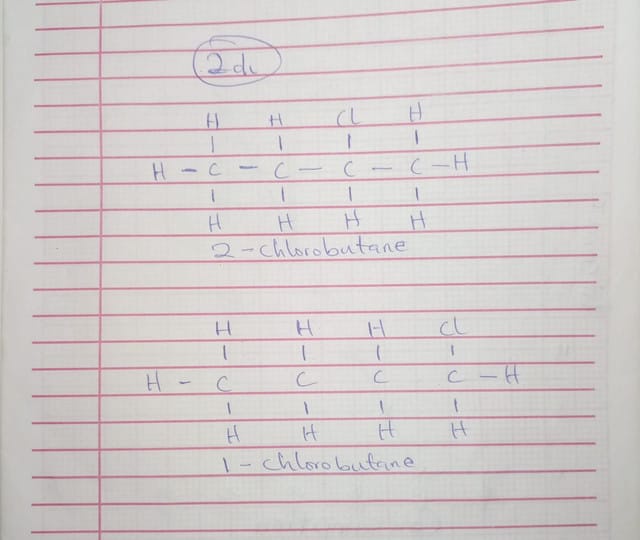 2di
H H Cl H
| | | |
H - C - C - C - C - H
| | | |
H H H H
2-chlorobutane
H H H Cl
| | | |
H - C C C C - H
| | | |
H H H H
1-chlorobutane